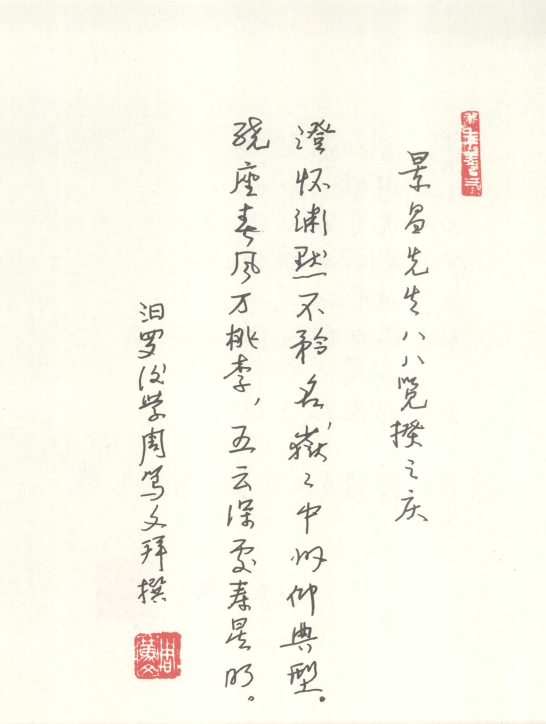 景昌先生八八览揆之庆
澄怀渊默不矜名，嶽々中州仰典型。
绕座春风万桃李，五云深处寿星明。
汨罗后学周笃文拜撰
周笃文